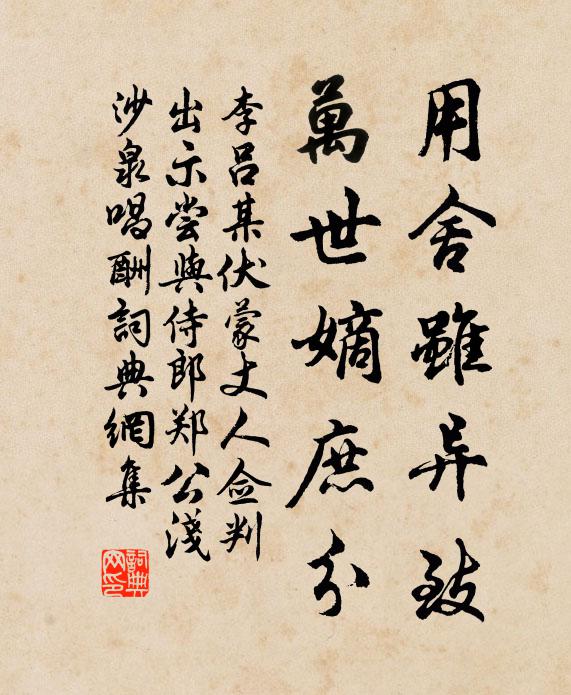 用舍雖异致
萬世嫡庶分
李呂某伏蒙丈人佥判
出示尝與侍郎郑公淺
沙泉唱酬詞典網集
詞典网印